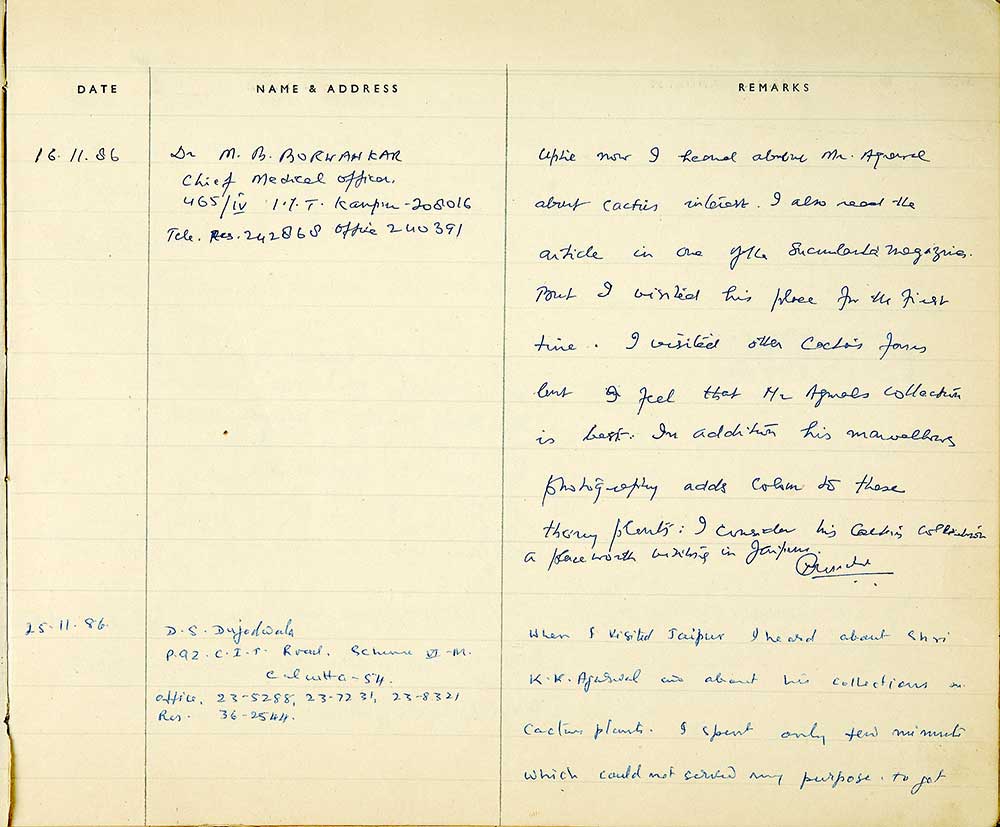 DATE NAME & ADDRESS REMARKS
16.11.86
Dr M. B. BORWANKAR
Chief Medical Officer.
465/IV I.I.T. Kanpur-208016
Tele. Res. 242868 Office 240391
now I heard about Mr. Agrawal
about cactus interest. I also read the
article in one of the Succulenta magazines.
But I visited his place for the first
time. I visited other Cactus farms
but I feel that Mr Agrwals collection
is best. In addition his marvellous
photography adds colour to these
thorny plants. I consider his Cactus collection
a place worth visiting in Jaipur.
25.11.86
D.S. Dujodwala
P.92. C.I.T. Road. Scheme VI-M.
Calcutta-54.
Office. 23-5288, 23-7231, 23-8321
Res. 36-2544.
When I visited Jaipur I heard about Shri
K.K. Agarwal about his collections
cactus plants. I spent only few minuts
which could not served my purpose. to got